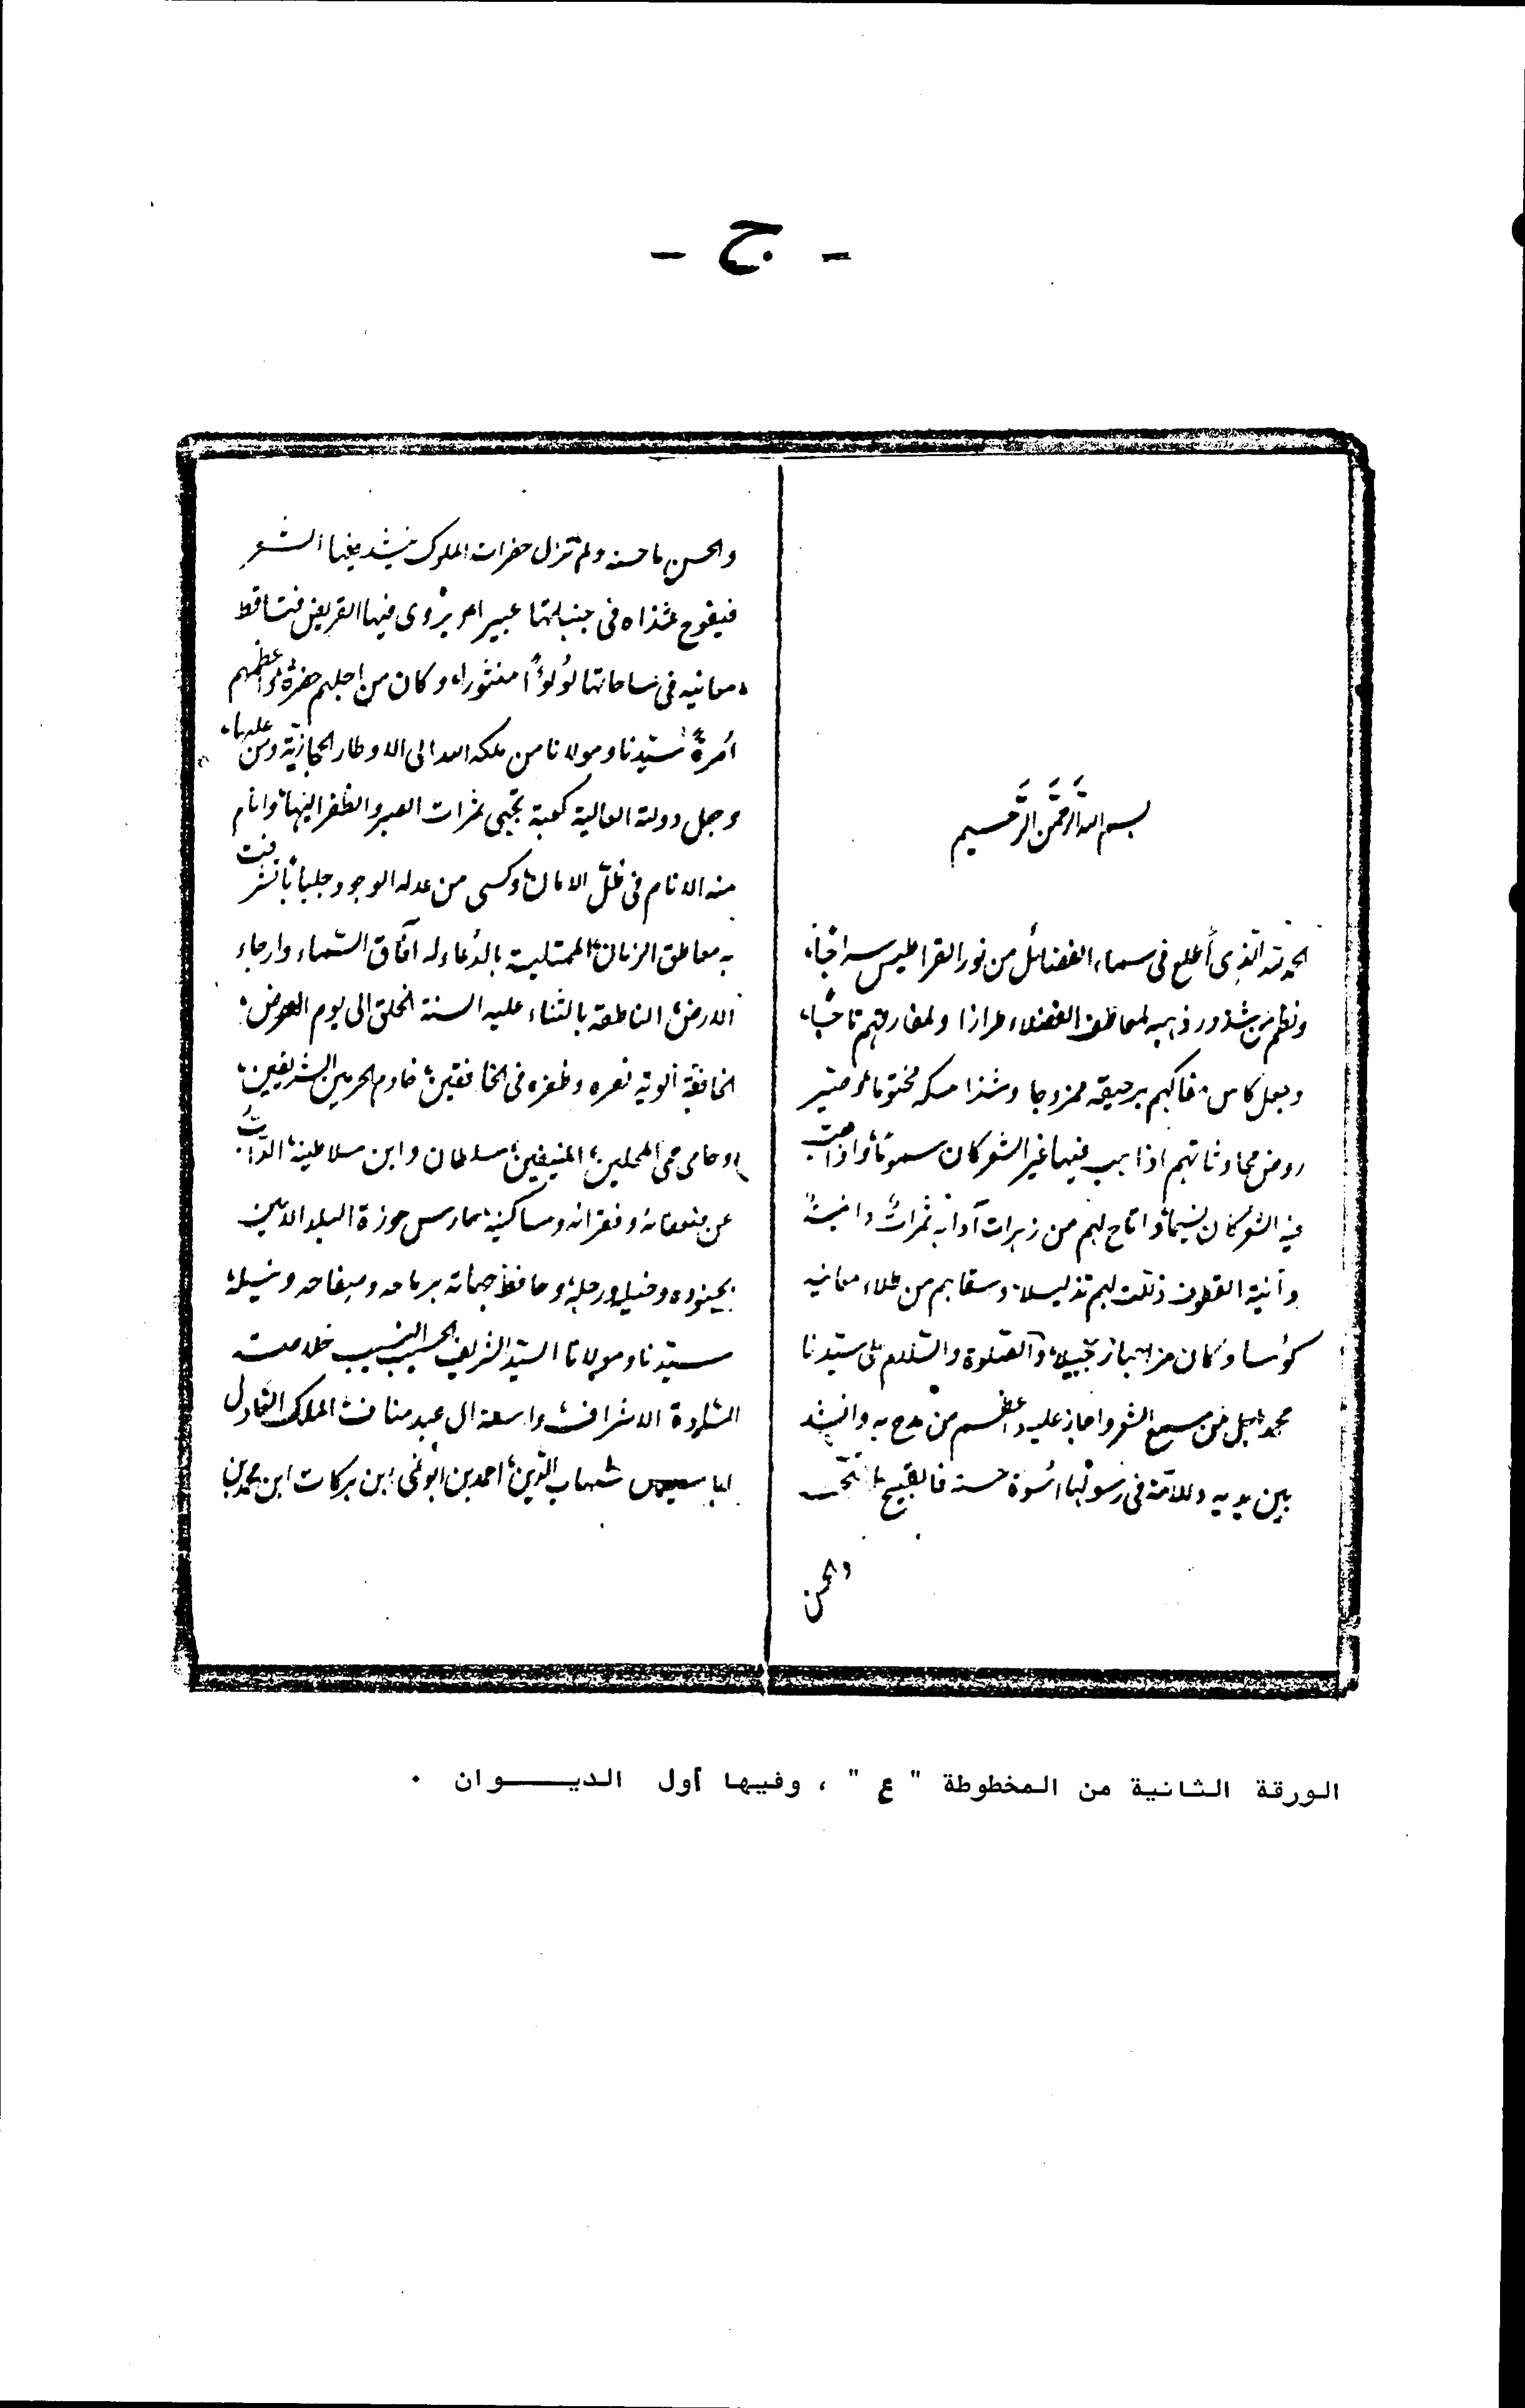 - ج -
بسم الله الرَّحمَن الرَّحيم
الحمد لله الّذي أطلع في سماء الفضائل من نور القراطيس سراجًا،
ونظم من شذور ذهبه لمعاطف الفضلاء طرازا ولمفارقهم تاجًا،
وجعل كاس مفاكهم برحيقه ممزوجا وشذا مسكه مختوما وصيّر
روض محادثاتهم اذا هب فيها غير الشو كان سمومًا واذا هبت
فيه الشو كان نسيمًا واتاح لهم من زهرات آدابه ثمرات دانية
وآنية القطوف ذللت لهم تذليلا وسقاهم من طلاء معانيه
كؤسا وكان مزاجها زنجبيلا والصلوة والسّلام على سيّدنا
محمد اجل من سمع الشعر واجاز عليه واعظم من مدح به وانشد
بين يديه وللامّة في رسولها اُسوة حسنة فالقبيح ما قبّحه
والحسن
والحسن ما حسنه ولم تزل حضرات الملوك ينشد فيها الشعر
فيفوح شذاه في جنباتها عبيرا ويروى فيها القريض فتساقط
معانيه في ساحاتها لؤلؤًا منثورا، وكان من اجلهم حضرةً واعظمهم
اُسرةً سيّدنا ومولانا من ملكه الله الاوطار الحجازيّة ومن عليها،
وجعل دولته العالية كعبة تجبى ثمرات النصر والظفر اليها وانام
منه الانام في ظلّ الامان، وكسى من عدله الوجود جلبابًا تشرفت
به معاطف الزمان، الممتلية بالدُعاء له آفاق السّماء وارجاء
الارض، الناطقة بالثناء عليه السنة الخلق الى يوم العرض،
الخافقة ألوية نصره وظفره في الخافقين، خادم الحرمين الشريفين،
وحامى حمى المحلين، المنيفين، سلطان وابن سلاطينه، الذّابُّ
عن ضعفائه وفقرائه ومساكينه، حارس حوزة البلد الامين
بجنوده وخيله ورجله، وحافظ جهاته برماحه وصفاحه ونبله،
سيّدنا ومولانا السيّد الشريف الحسيب النسيب خلاصة
السّادة الاشراف، واسطة ال عبد مناف، الملك العادل
شهاب الدّين، احمد بن ابو نمى ابن بركات ابن محمد بن
الورقة الثانية من المخطوطة " ع " ، وفيها أول الديـــــــوان .